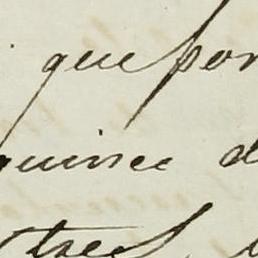 que por
quince d
tres,